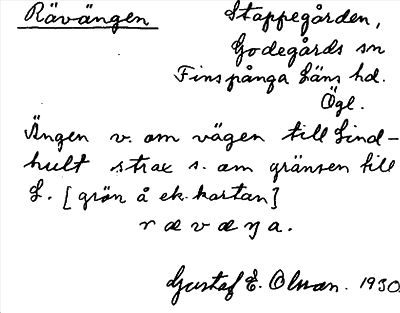 Rävängen
Stappegården,
Godegårds sn
Finspånga läns hd.
Ögl.
Ängen v. om vägen till Lind-
hult strax s. om gränsen till
L. [grön å ek. kartan]
r æ v æ ŋ a.
Gustaf E. Olsson. 1930